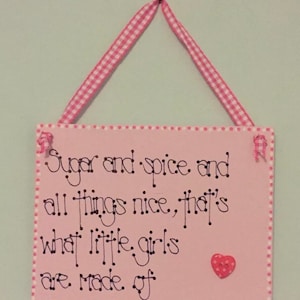 Sugar and spice and
all things nice, that's
what little girls
are made of